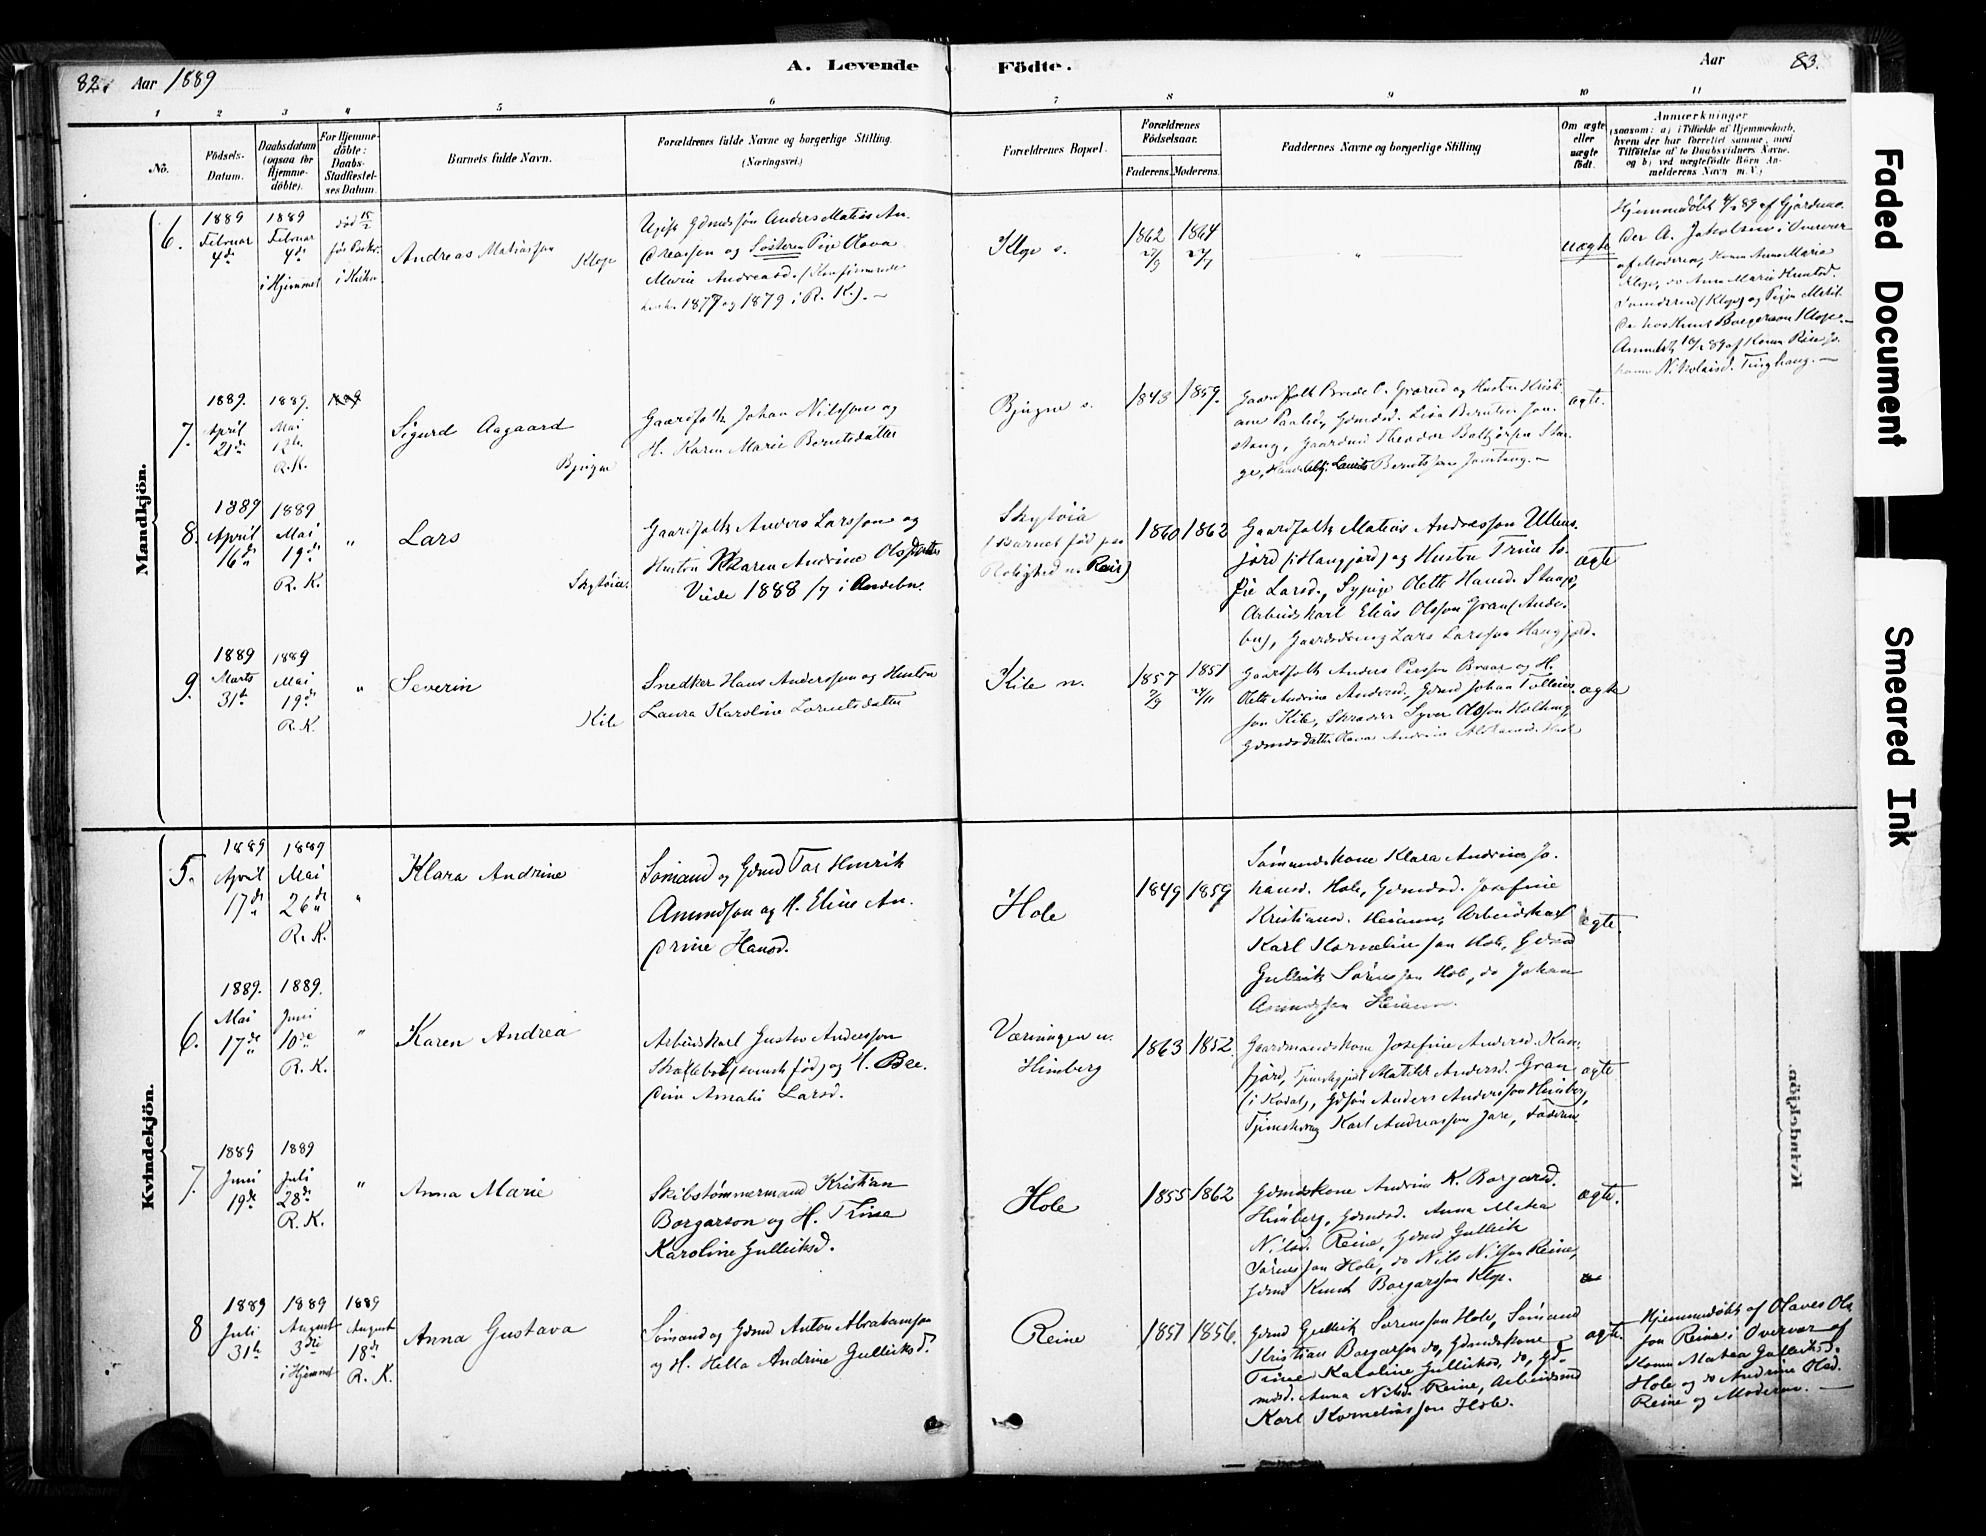 82. Aar 1889
A. Levende Födte.
Aar 83.
1 2 3 4 5 6 7 8 9 10 11
No.
Födsels-
Datum.
Daabsdatum
(ogsaa for
Hjemme-
döbte).
For Hjemme-
döbte:
Daabs-
Stadfæstel-
ses Datum.
Barnets fulde Navn.
Forældrenes fulde Navne og borgerlige Stilling
(Næringsvei.)
Forældrenes Bopæl.
Forældrenes
Födselsaar.
Faderens. Moderens.
Faddernes Navne og borgerlige Stilling
Om ægte
eller
uægte
födt.
Anmærkninger
(saasom: a) i Tilfælde af Hjemmedaab,
hvem der har forrettet samme, med
Tilföielse af to Daabsvidners Navne.
og b) ved uægtefödte Börn An-
melderens Navn m. V.)
Mandkjön.
6.
1889
Februar
4de
1889
Februar
4de
i Hjemmet
död 15/2
før Bekr.
i Kirken
Andreas Matiasson
Klop
Ugift Gdmdssøn Anders Matias An-
dreasson og Søsteren Pige Olava
Marie Andreasd. (Konfirmerede
1877 og 1879 i R. K.). —
Klop s.
1862
1864
"
uægte
Hjemmedøbt 4/2 89 af Gjordmo-
der A. Jakobsen i Overvær
af Moderen, Konen Anne Marie
Klop, do Anne Marie
(Klop) og Pigen
hos Knut Borgerson Klop. —
Anmeldt 89 af Konen
Nikolaisd. Tinghaug. —
7.
1889.
April
21de
1889.
Mai
12te
R.K.
1889
Sigurd Aagaard
Bjugne
Gaardfolk Johan Nilsson og
H. Karen Marie Berntsdatter
Bjugne s.
1843 1859.
Gaardfolk og Hustru Kristi-
ane Paulsd., Gdmdsd. Lisa Berntsd. Jon-
stang, Gaardmd Theodor
Laurits Berntsson Jonstang. —
ægte.
8.
1889
April
16de
1889
Mai
19de
R. K.
"
Lars
Skytøia.
Gaardfolk Anders Larsson og
Hustru Karen Andrine Olsdatter
Viede 1888 /7 i Andebu.
Skytøia
(Barnet født paa
Rolighed u. Reis)
1860 1862
Gaardfolk Matias Andresson Ullens-
jord (i Haugjord) og Hustru Trine So-
fie Larsd., Sypige Olette Hansd. Staap,
Arbeidskarl Elias Olsson Gran (Ande-
bu), Gaardsdreng Lars Larsson Haugjord.
ægte
9.
1889
Marts
31te
1889
Mai
19de
R.K.
"
Severin
Kile
Snedker Hans Andersson og Hustru
Laura Karoline Lorentsdatter
Kile n.
1857
2/9
1851
24/11
Gaardfolk Anders Persson Braar og H.
Olette Andrine Andersd., Gdmd Johan Tollefs-
son Kile, Skrædder Syver Olsson Holhaug,
Gdmdsdatter Olava Andrine
ægte
Kvindekjön.
5.
1889
April
17de
1889
Mai
26de
R. K.
"
Klara Andrine
Sømand og Gdmd Tor Henrik
Amundson og H. Eline An-
drine Hansd.
Hole
1849 1859
Sømandskone Klara Andrine Jo-
hansd. Hole, Gdmdsd. Josefine
Kristiansd. Heiaen, Arbeidskarl
Karl Korneliusson Hole, Gdmd
Gullerik Sørensson Hole, do Johan
Amundsson Heiaen.
ægte.
6.
1889.
Mai
17de
1889.
Juni
10de
R. K.
"
Karen Andrea
Arbeidskarl Gustav Andersson
Skallebøl (svensk fød) og H. Ber-
dine Amalie Larsd.
Væringen u.
Himberg
1863 1852.
Gaardmandskone Josefine Andersd. Kam-
fjord, Tjenestepige Matilde Andersd. Gran
(i Kodal), Gdssøn Anders Andersson Himberg,
Tjenestedreng Karl Andreasson Jare, Faderen.
ægte
7.
1889
Juni
19de
1889
Juli
28de
R. K.
"
Anna Marie
Skibstømmermand Kristian
Borgarson og H. Trine
Karoline Gulleiksd.
Hole
1855 1862
Gdmdskone Andrine K. Borgarsd.
Himberg, Gdmdsd. Anna Matea
Nilsd. Reine, Gdmd Gulleik
Sørensson Hole, do Nils Nilsson Reine,
Gdmd Knut Borgarsson Klop.
ægte.
8
1889
Juli
31te
1889
August
3die
i Hjemmet
1889
August
18de
R. K.
Anna Gustava
Sømand og Gdmd Anton Abrahamson
og H. Hella Andrine Gulleiksd.
Reine
1851 1856.
Gdmd Gulleik Sørensson Hole, Sømand
Kristian Borgarson do, Gdmdskone
Trine Karoline Gulleiksd. do, Gd-
mdsd. Anna Nilsd. Reine, Arbeidsmd
Karl Korneliusson Hole.
ægte.
Hjemmedøbt af Olaves Ols-
son Reine i Overvær af
Konen Matea Gulleiksd.
Hole og do Andrine Hsd.
Reine og Moderen. —
Faded Document
Smeared Ink